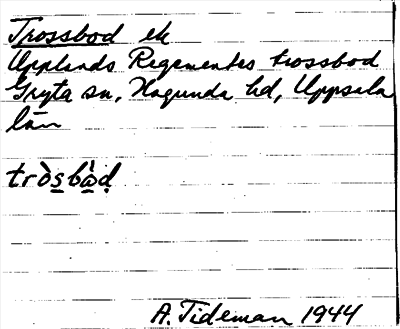 Trossbod ek
Upplands Regementes trossbod
Gryta sn, Hagunda hd, Uppsala
län
tròs̲bẁ̲ḍ
A. Tideman 1944